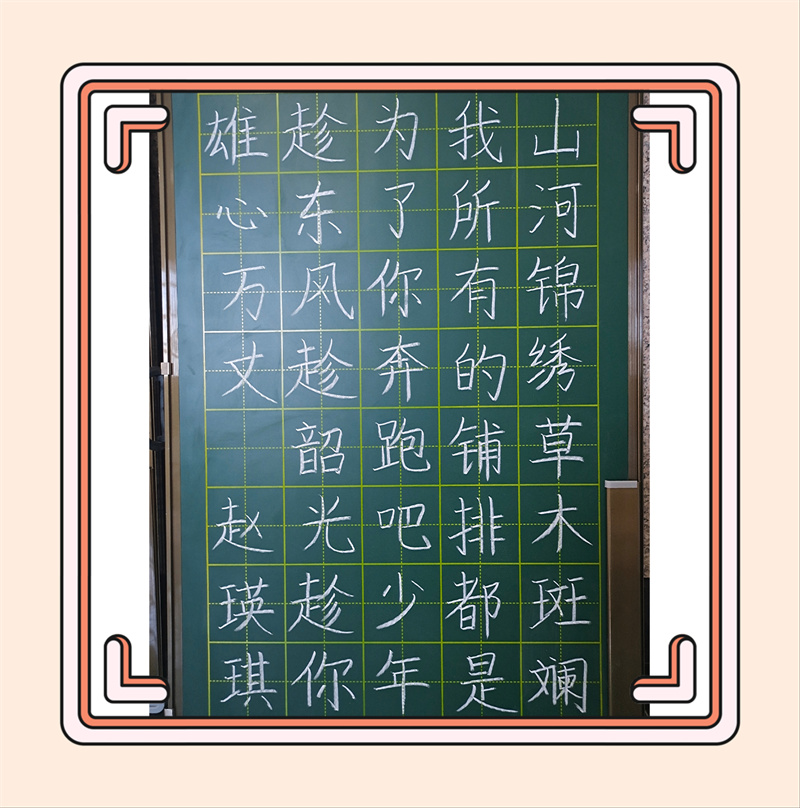 山河锦绣草木斑斓
我所有的铺排都是
为了你奔跑吧少年
趁东风趁韶光趁你
雄心万丈 赵瑛琪